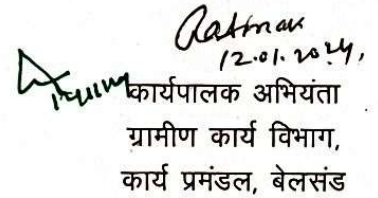 12.01.2024,
कार्यपालक अभियंता
ग्रामीण कार्य विभाग,
कार्य प्रमंडल, बेलसंड